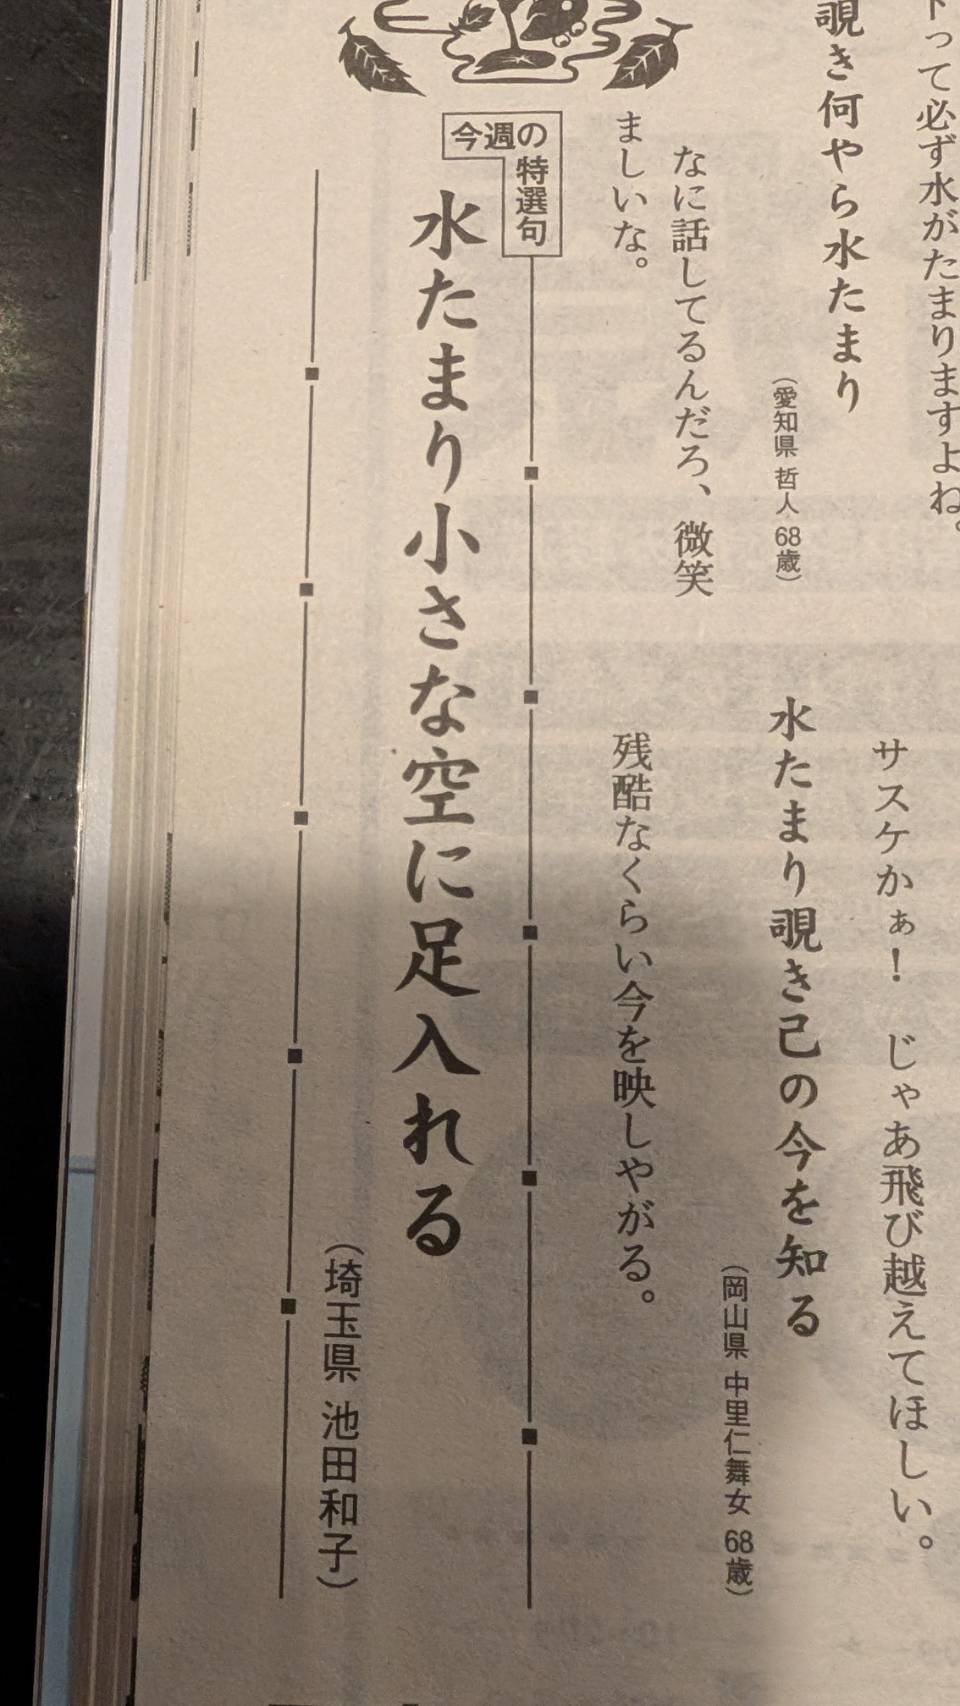 って必ず水がたまりますよね。
覗き何やら水たまり
（愛知県 哲人 68歳）
なに話してるんだろ、微笑
ましいな。
サスケかぁ！ じゃあ飛び越えてほしい。
水たまり覗き己の今を知る
（岡山県 中里仁舞女 68歳）
残酷なくらい今を映しやがる。
今週の特選句
水たまり小さな空に足入れる
（埼玉県 池田和子）